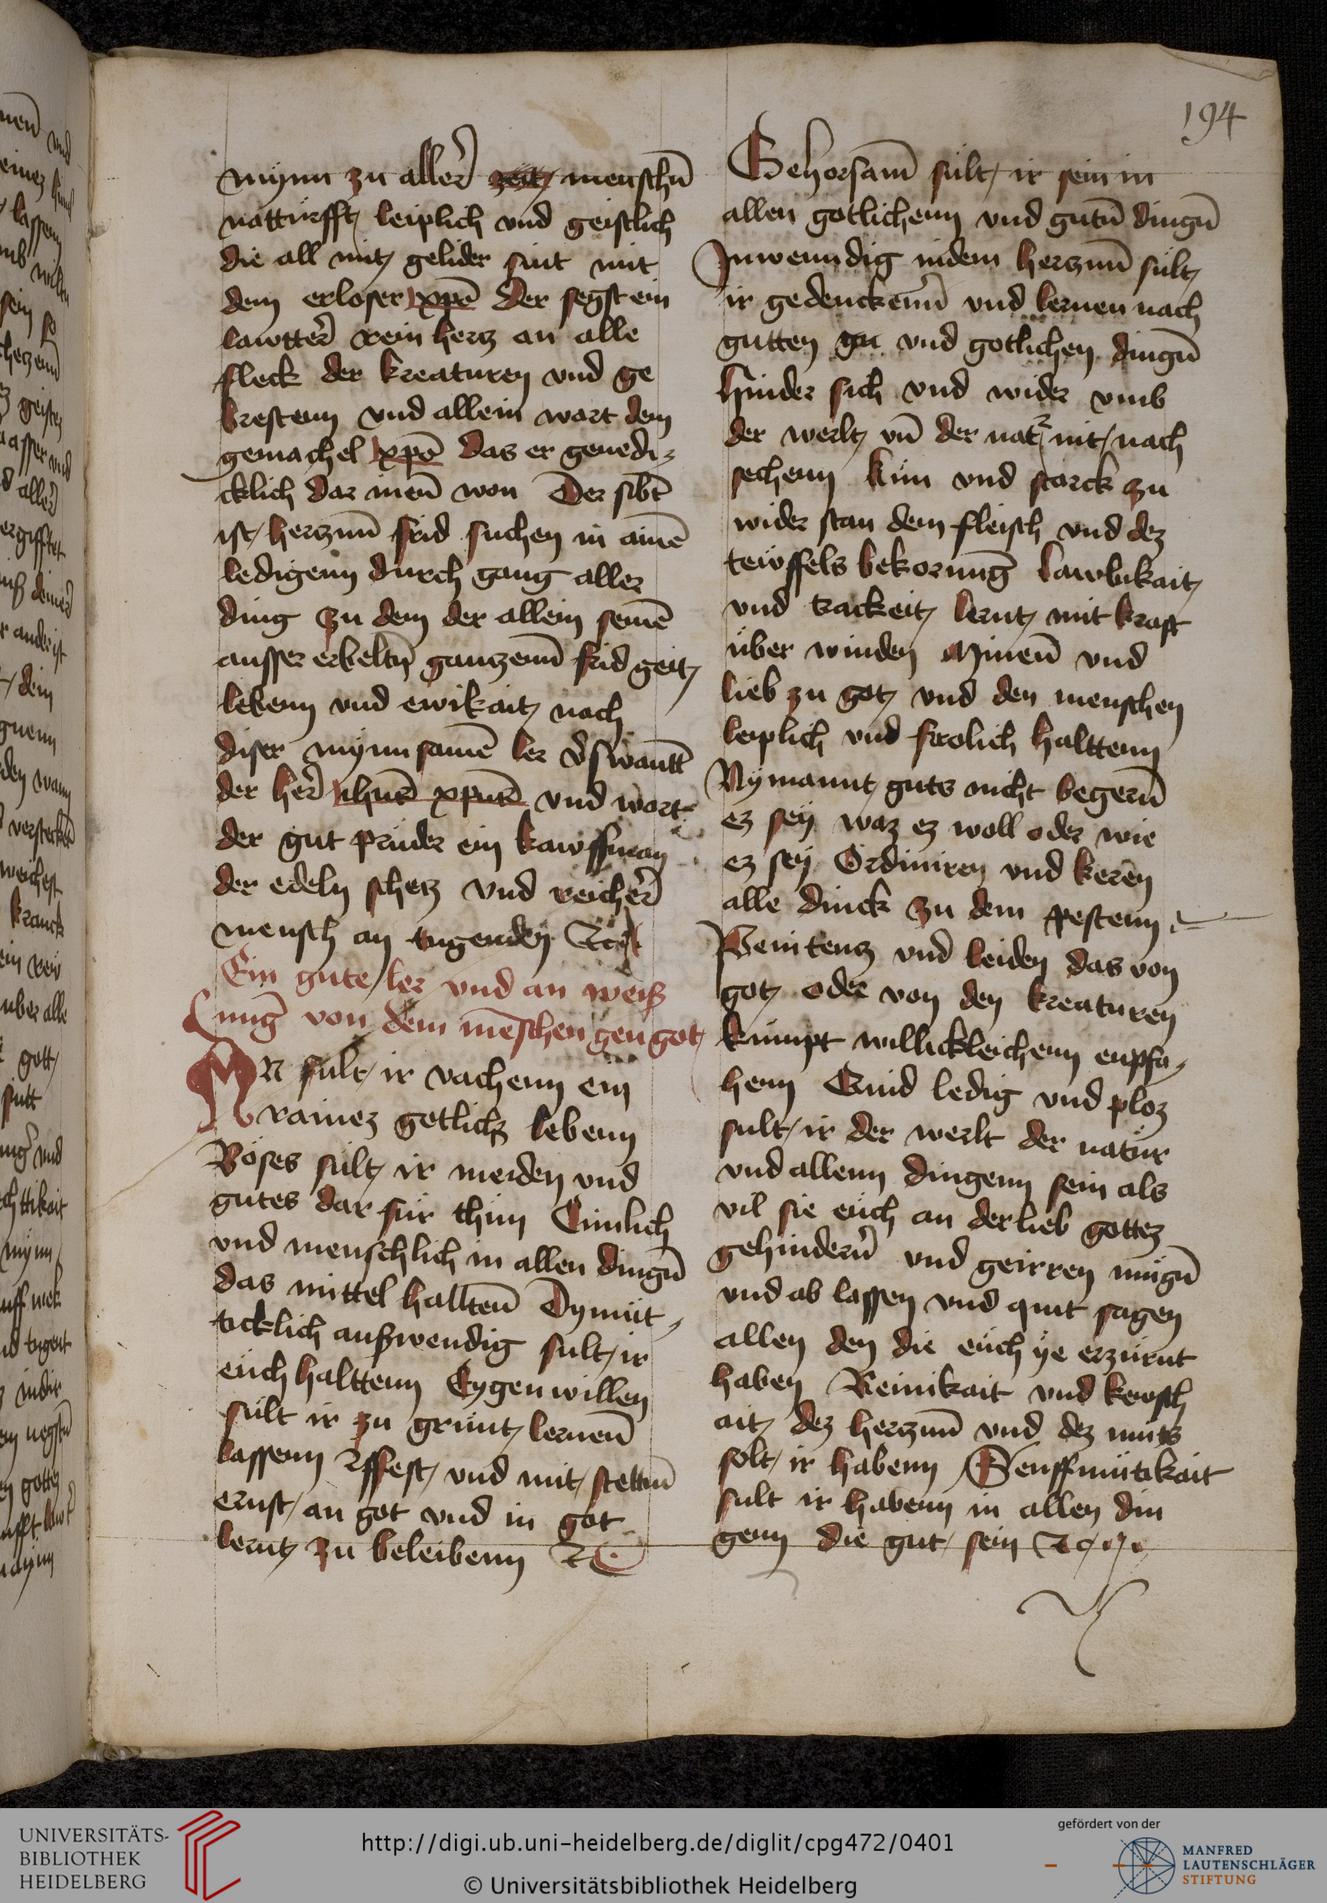 194
mynn zu allerẽ zeit menschñ
natturfft leiplich vnd geistlich
die all mit gelider sint mit
dem erloser xpõ Der segst ein
lawtterẽ rein hertz an alle
fleck der kreaturen vnd ge
bresten vnd allein wart dem
gemachel xpõ das er genedi
cklich dar inen won Der sibt
ist hertzen frid suchen in ainẽ
ledigenn durch gang aller
ding zu dem der allein seinẽ
ausser erkeltñ gantzenn frid geit
lebenn vnd ewikait nach
diser mynnsamẽ ler v̄swantt
der herẽ ihus̄ xpūs̄ vnd wart
der gut pruder ein kawffman
der edeln schetz vnd reicherẽ
mensch an tugenden Etc
Ein gute ler vnd an weiß
ung von dem menschen gen got
Nun sult ir vachenn ein
rainez gotlichz lebenn
Böses sült ir meiden vnd
gutes dar für thun Tunlich
vnd menschlich in allen dingñ
das mittel halltenn Dymüt
ticklich außwendig sult ir
euch halttenn Eygen willen
sült ir zu grunt lernenn
lassenn Vffest vnd mit stettem
ernst an got vnd in got
lernt zu beleibenn Etc
Gehorsam sült ir sein in
allen gotlichenn vnd gutñ dingñ
Inwenndig in dem hertzenn sült
ir gedenckenn vnd lernen nach
gutten gu vnd gotlichen dingñ
Hinder sich vnd wider vmb
der werlt vñ der natr nit nach
sechenn Kün vnd starck zu
wider stan dem fleisch vnd dez
tewffels bekorung Lawbikait
vnd trackeit lernt mit kraft
über winden Minenn vnd
lieb zu got vnd den menschen
leiplich vnd frolich halttenn
Nymannt guts nicht begernn
ez sey waz ez woll oder wie
ez sey Ordiniren vnd keren
alle dinck zu dem pestenn
Penitentz vnd leiden das von
got oder von den kreaturen
kumpt willickleichenn enpfa
henn Vnd ledig vnd ploz
sult ir der werlt der natür
vnd allenn dingenn sein als
vil sie euch an der lieb gottez
gehindern vnd geirren mügñ
vnd ab lassen vnd quit sagen
allen den die euch ye erzürnt
haben Reinikait vnd keusch
ait dez hertzenn vnd dez muts
solt ir habenn Senffmütikait
sult ir habenn in allen din
genn die gut sein Etc
UNIVERSITÄTS-
BIBLIOTHEK
HEIDELBERG
http://digi.ub.uni-heidelberg.de/diglit/cpg472/0401
© Universitätsbibliothek Heidelberg
gefördert von der
MANFRED
LAUTENSCHLÄGER
STIFTUNG